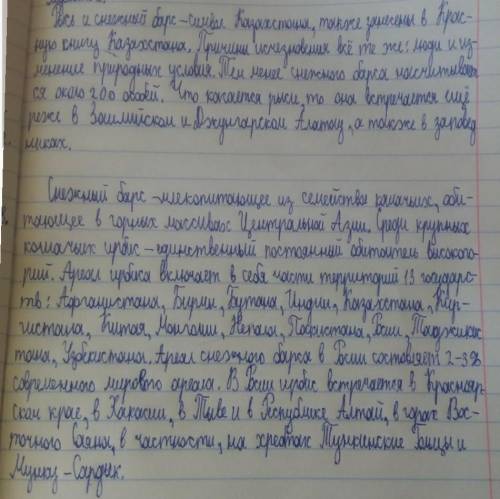 Рысь и снежный барс-символ Казахстана, также занесены в Крас-
ную книгу Казахстана. Причины исчезновения всё те же: люди и из-
менение природных условий. Тем менее снежного барса насчитывает-
ся около 200 особей. Что касается рыси, то она встречается ещё
реже в Заилийском и Джунгарском Алатау, а также в запове-
дниках.
Снежный барс-млекопитающее из семейства кошачьих, оби-
тающее в горных массивах Центральной Азии. Среди крупных
кошачьих ирбис-единственный постоянный обитатель высокого-
рий. Ареал ирбиса включает в себя части территорий 13 государс-
тв: Афганистана, Бирмы, Бутана, Индии, Казахстана, Кир-
гистана, Китая, Монголии, Непала, Пакистана, России, Таджикис-
тана, Узбекистана. Ареал снежного барса в России составляет 2-3%
современного мирового ареала. В России ирбис встречается в Краснояр-
ском крае, в Хакасии, в Тыве и в Республике Алтай, в горах Вос-
точного Саяна, в частности, на хребтах Тункинские Гольцы и
Мунку-Сардык.